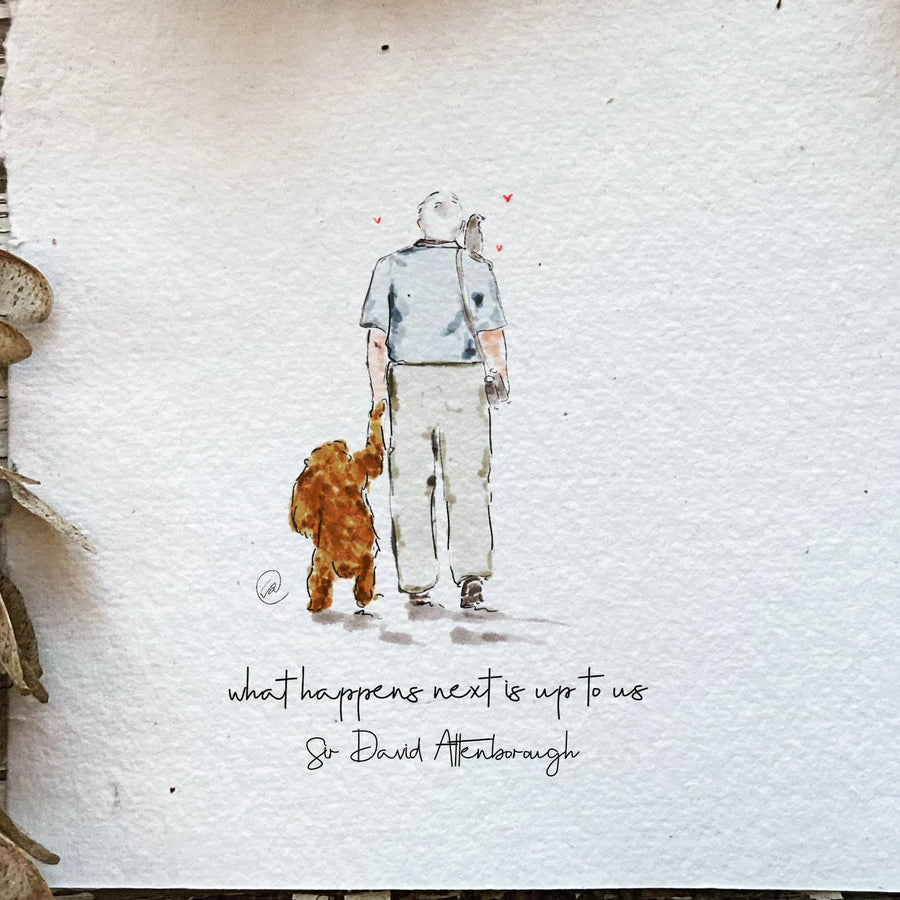 what happens next is up to us
Sir David Attenborough